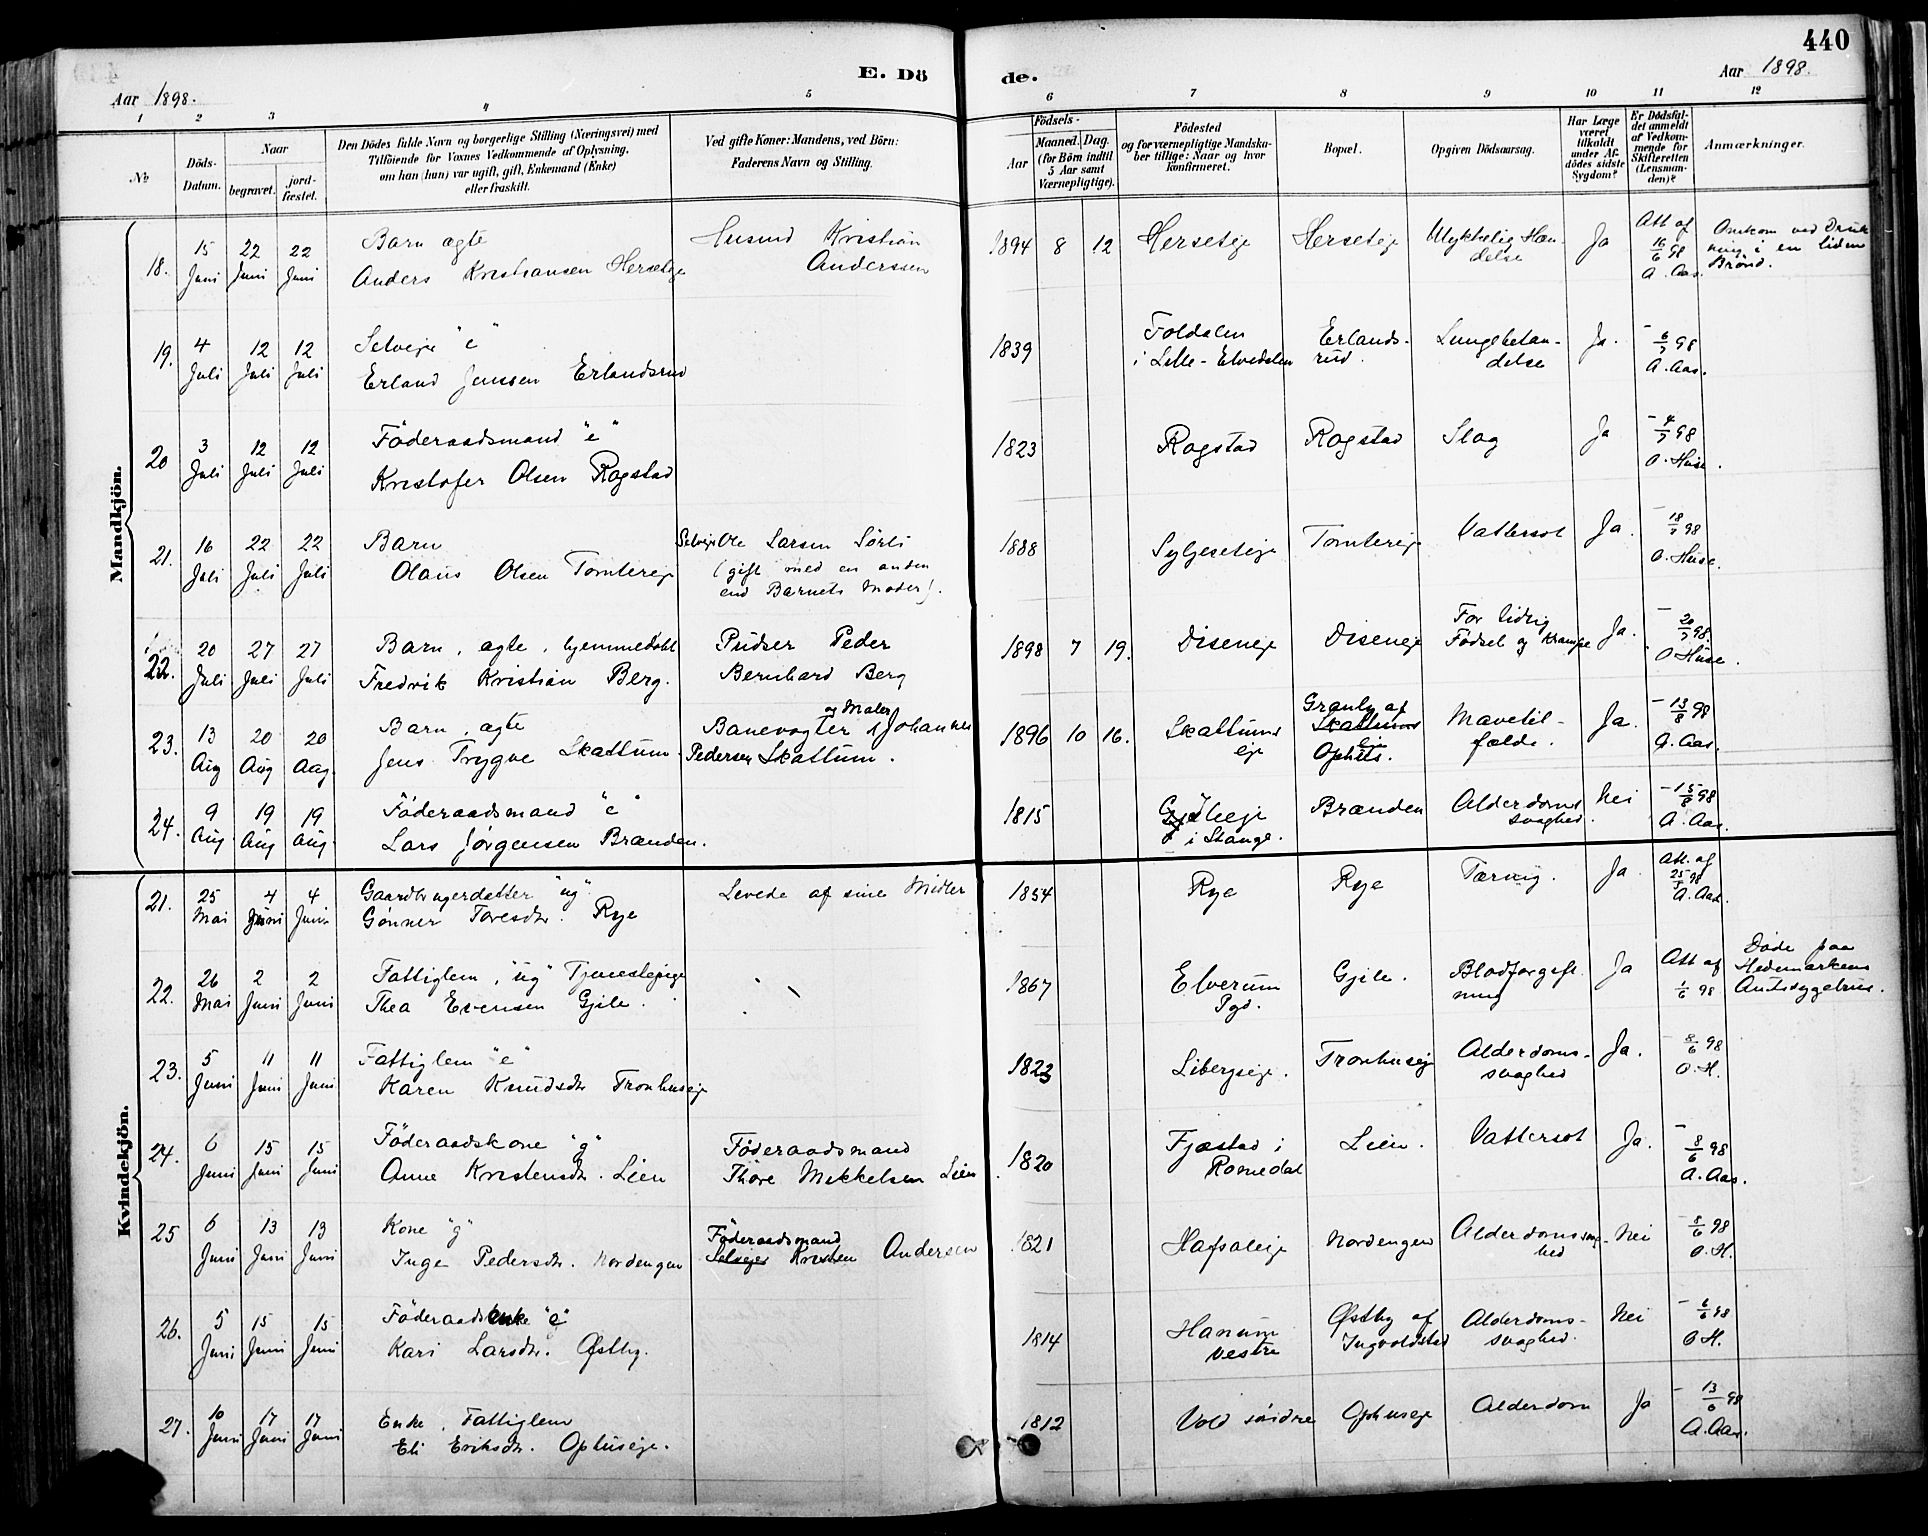 440
E. Dö de.
Aar 1898. Aar 1898.
1 2 3 4 5 6 7 8 9 10 11 12
No
Döds-Datum.
Naar
begravet.
jord-fæstet.
Den Dödes fulde Navn og borgerlige Stilling (Næringsvei) med
Tilföiende for Voxnes Vedkommende af Oplysning,
om han (hun) var ugift, gift, Enkemand (Enke)
eller fraskilt.
Ved gifte Koner: Mandens, ved Börn:
Faderens Navn og Stilling.
Födsels-
Aar
Maaned. Dag.
(for Börn indtil
5 Aar samt
Værnepligtige).
Födested
og for værnepligtige Mandska-
ber tillige: Naar og hvor
konfirmeret.
Bopæl.
Opgiven Dödsaarsag.
Har Læge
været
tilkaldt
under Af-
dödes sidste
Sygdom?
Er Dödsfal-
det anmeldt
af Vedkom-
mende for
Skifteretten
(Lensman-
den)?
Anmærkninger.
Mandkjön.
18. 15 Juni 22 Juni 22 Juni Barn ægte
Anders Kristiansen Herseteje
Husmd Kristian
Anderssen
1894 8 12 Herseteje Herseteje Ulykkelig Hæn-
delse Ja Att af 16/6 98 A. Aas.
Omkom ved Druk-
ning i en liden
Brønd.
19. 4 Juli 12 Juli 12 Juli Selveje "e"
Erland Jenssen Erlandsrud
1839 Foldalen
i Lille-Elvedalen Erlands-
rud. Lungebetæn-
delse Ja. - 6/7 98 A. Aas.
20 3 Juli 12 Juli 12 Juli Föderaadsmand "e"
Kristofer Olsen Rogstad
1823 Rogstad Rogstad Slag Ja - 4/7 98 O. Huse.
21. 16 Juli 22 Juli 22 Juli Barn
Olaus Olsen Tomtereje
Selvejer Ole Larsen Sörli
(gift med en anden
end Barnets Moder).
1888 Syljeseteje Tomtereje Vattersot Ja. - 18/7 98 O. Huse.
22. 20 Juli 27 Juli 27 Juli Barn, ægte, hjemmedöbt
Fredrik Kristian Berg.
Pudser Peder
Bernhard Berg
1898 7 19. Diseneje Diseneje For tidlig
Födsel og Krampe Ja. - 20/7 98. O Huse.
23. 13 Aug 20 Aug 20 Aug. Barn, ægte
Jens Trygve Skattum.
og Maler
Banevogter Johannes
Pedersen Skattum.
1896 10 16. Skattums
eje Granly af
Skattums
eje
Ophus. Mavetil-
fælde. Ja. - 13/8 98 A. Aas.
24. 9 Aug 19 Aug 19 Aug. Föderaadsmand "e"
Lars Jørgensen Brænden.
1815 i Stange. Brænden Alderdoms
svaghed. Nei - 15/8 98 A. Aas.
Kvindekjön.
21. 25 Mai 4 Juni 4 Juni Gaardbrugerdatter "ug"
Gönner Toresdtr. Rye
Levede af sine Midler
1854 Rye Rye Tæring. Ja. Att. af 25/5 98 A. Aas.
22. 26 Mai 2 Juni 2 Juni Fattiglem, "ug" Tjenestepige
Thea Evensen Gjile.
1867 Elverum
Pgd. Gjile. Blodforgift-
ning Ja Att af 1/6 98
Døde paa
Hedemarkens
Amtssygehus.
23. 5 Juni 11 Juni 11 Juni Fattiglem "e"
Karen Knudsdtr Tronhuseje
1823 Libergseje. Tronhuseje Alderdoms-
svaghed Ja. - 8/6 98 O. H.
24. 6 Juni 15 Juni 15 Juni Föderaadskone "g"
Anne Kristensdtr. Lien
Föderaadsmand
Thore Mikkelsen Lien.
1820 Fjæstad i
Romedal Lien. Vattersot Ja. - 8/6 98 A. Aas.
25 6 Juni 13 Juni 13 Juni Kone "g"
Inge Pedersdtr. Nordengen
Föderaadsmand
Selvejer Kristen Andersen
1821 Hafsaleje Nordengen Alderdomssvag-
hed Nei - 8/6 98 O. H.
26. 5 Juni 15 Juni 15 Juni Föderaadsenke "e"
Kari Larsdtr. Østby.
1814 Hanum
vestre Østby af
Ingvoldstad Alderdoms-
svaghed. Nei - 6/6 98 O H.
27. 10 Juni 17 Juni 17 Juni Enke, Fattiglem
Eli Eriksdtr. Ophuseje.
1812 Vold söndre Ophuseje Alderdom Ja - 13/6 98 A. Aas.